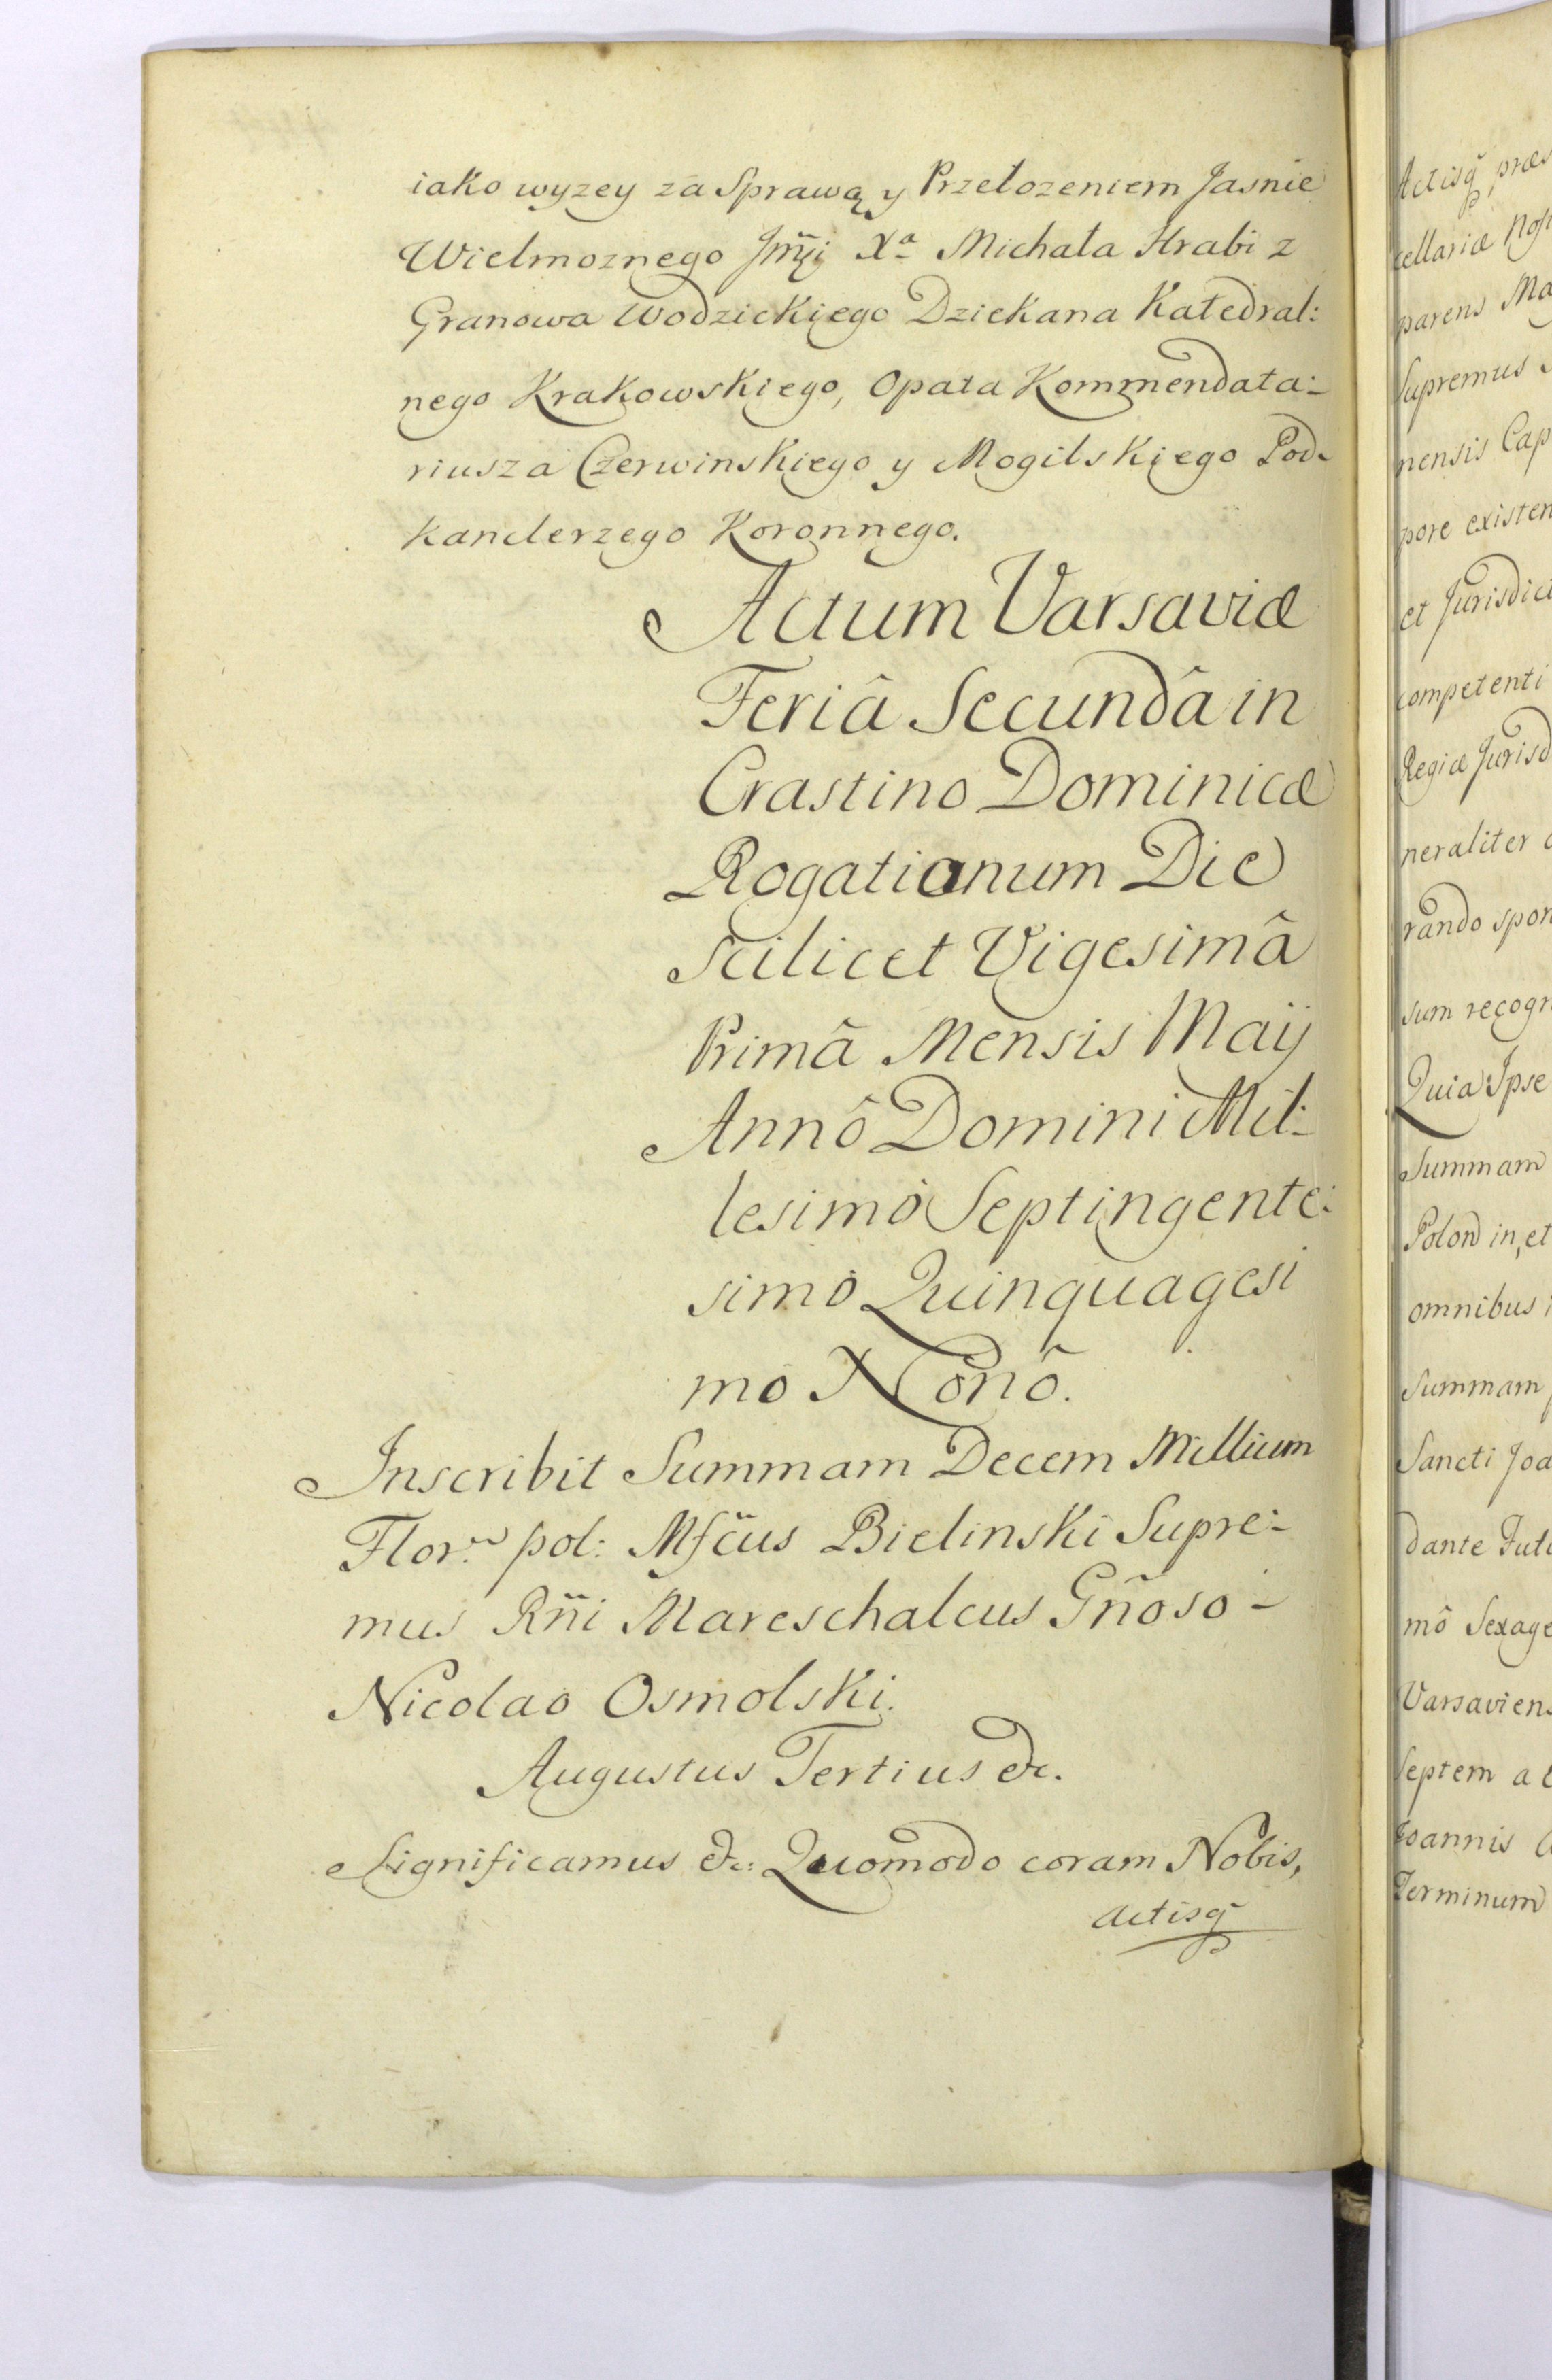 iako wyzey za Sprawą y Przełozeniem Jasnie
Wielmoznego Jm̃ci Xa Michała Hrabi z
Granowa Wodzickiego Dziekana Katedral:
nego Krakowskiego, Opata Kommendata:
riusza Czerwinskiego y Mogilskiego Pod-
kanclerzego Koronnego.
Actum Varsaviæ
Feriâ Secundâ in
Crastino Dominicæ
Rogationum Die
Scilicet Vigesimâ
Primâ Mensis Maij
Annô Domini Mil:
lesimô Septingente:
simô Quinquagesi
mo Nonô.
Inscribit Summam Decem Millium
Flor: pol: Mfcus Bielinski Supre:
mus Rñi Mareschalcus Gñoso
Nicolao Osmolski.
Augustus Tertius &c.
Significamus &c: Quomodo coram Nobis,
Actisq̃
Actisq̃
cellariæ
parens
Supremus
nensis Cap
pore existen
et Jurisdict
competenti
Regiæ Jurisd
neraliter
rando spon
sum recogn
Quia Ipse
Summam
Polon in, et
omnibus
Summam
Sancti Joa
dante
mô Sexage
Varsaviens
Septem a
Joannis
Terminum